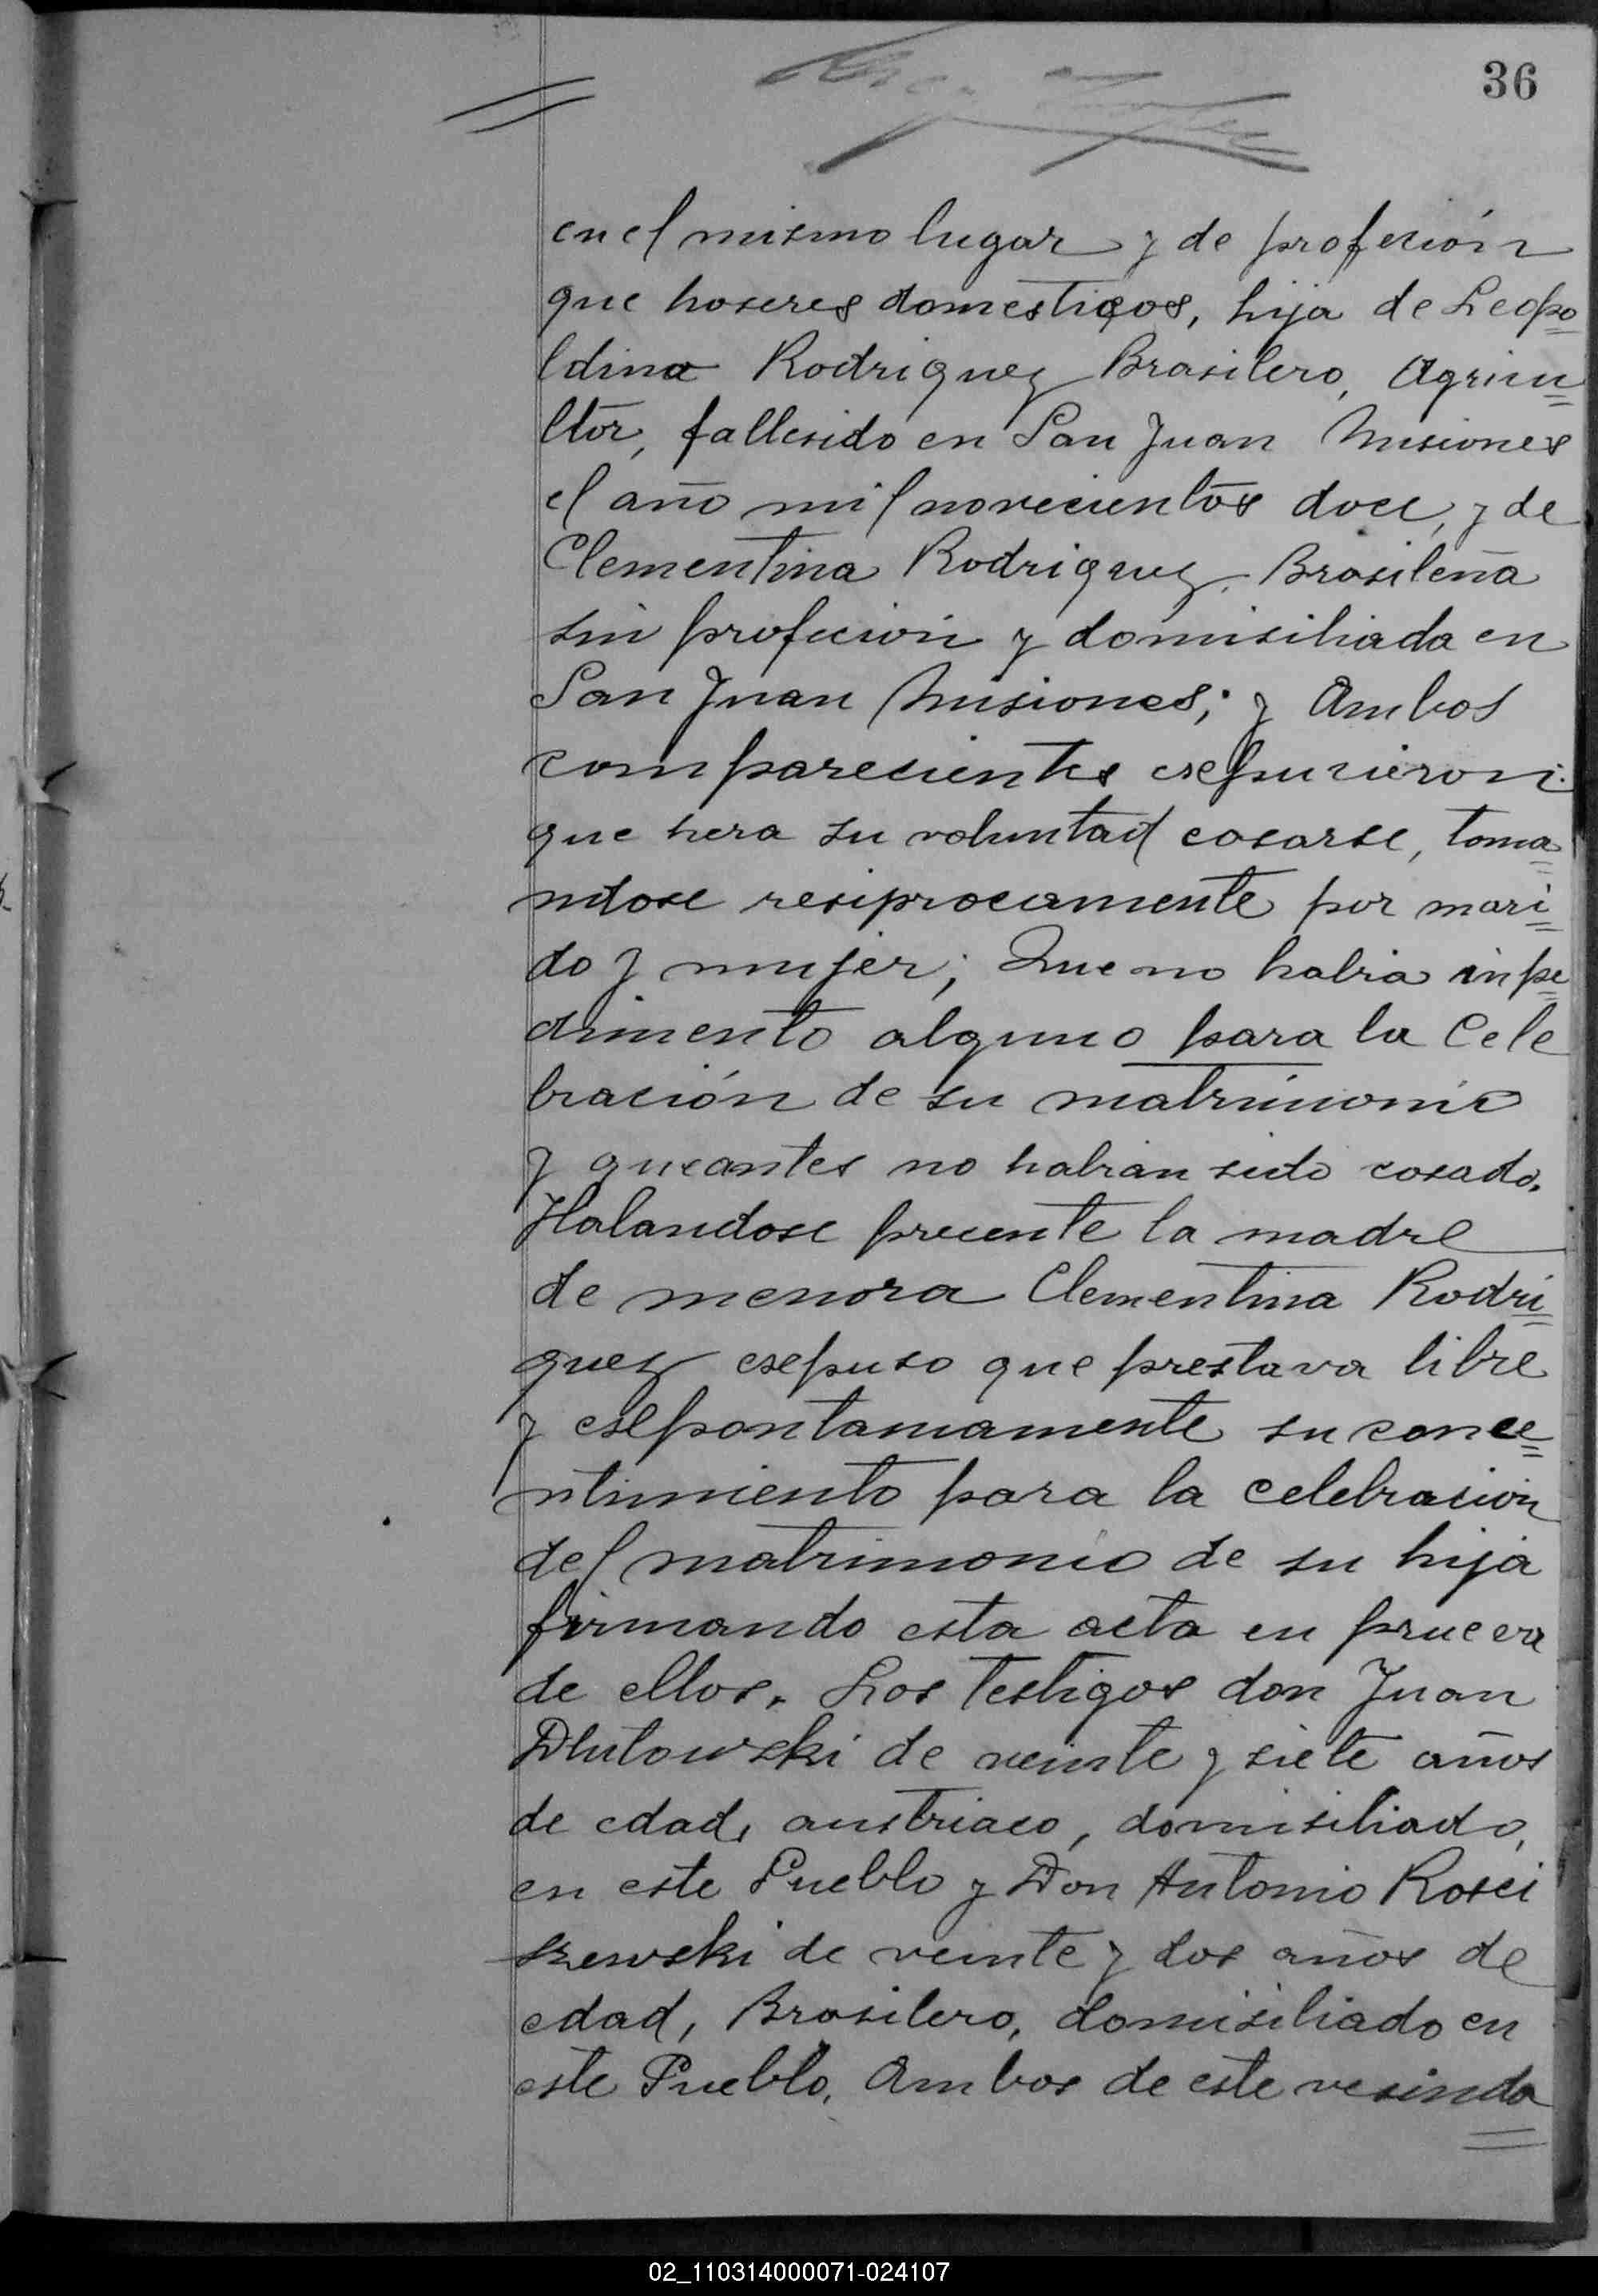 36
en el mismo lugar y de profesión
que hoseres domesticos, hija de Leopo
ldino Rodriguez Brasilero, Agricu
ltor, fallesido en San Juan Misiones
el año mil novecientos doce, y de
Clementina Rodriguez. Brasileña
sin profecion y domisiliada en
San Juan Misiones; y Ambos
comparecientes esepucieron:
que hera su voluntad casarse, toma
ndose resiprocamente por mari
do y mujer; Que no habia inpe
dimento alguno para la Cele
bración de su matrimonio
y que antes no habian sido casado.
Halandose precente la madre
de menora Clementina Rodri
guez esepuso que prestava libre
y esepontaniamente su conce
ntimiento para la celebracion
del matrimonio de su hija
firmando esta acta en prueva
de ellos. Los testigos don Juan
Dlutowski de veinte y siete años
de edad, austriaco, domisiliado,
en este Pueblo y Don Antonio Rosci
szewski de veinte y dos años de
edad, Brasilero, domisiliado en
este Pueblo, Ambos de este vesinda
02_110314000071-024107